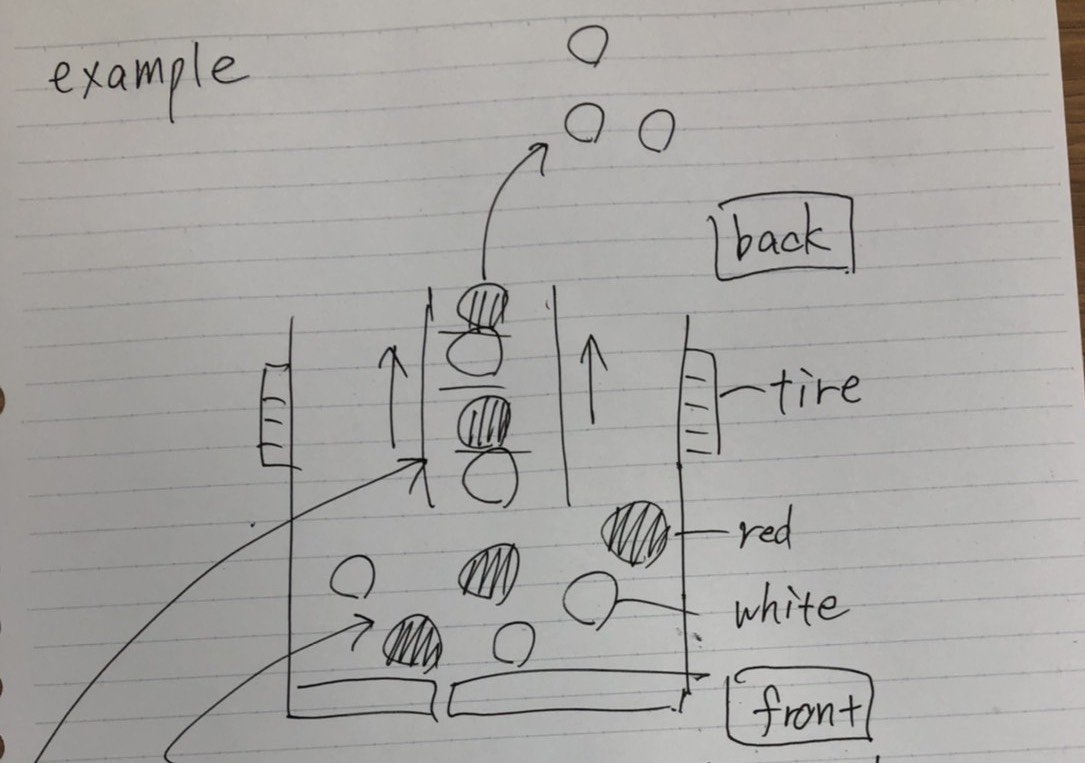 example
back
tire
red
white
front